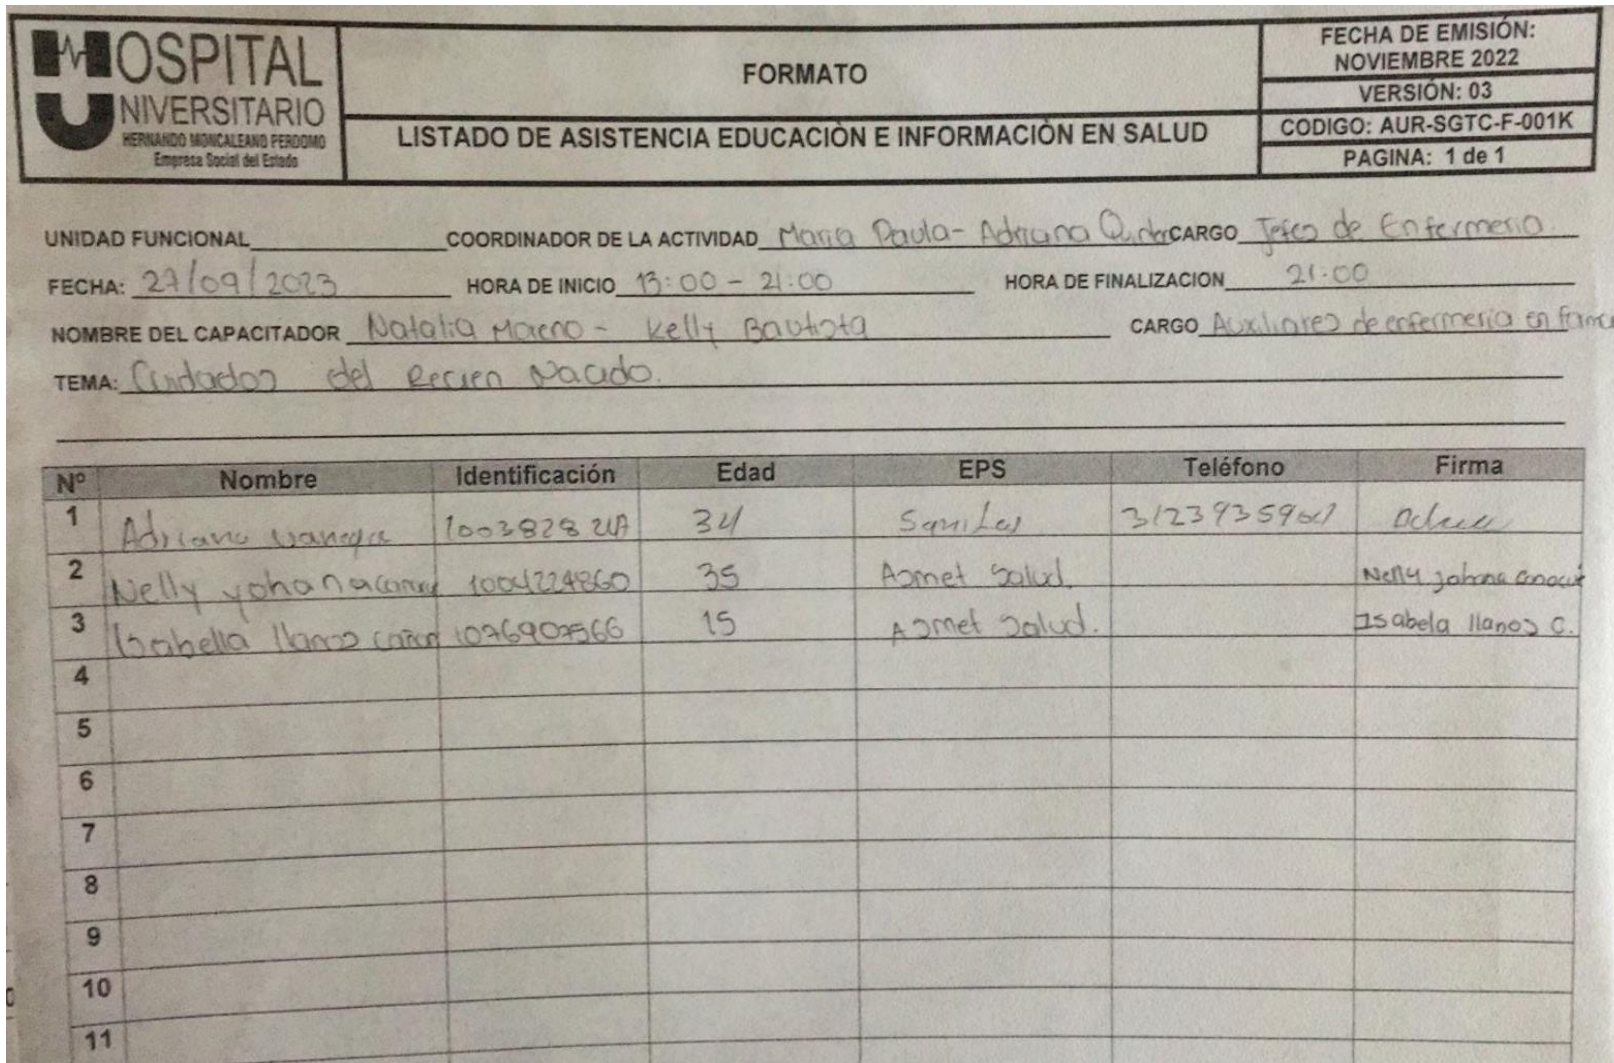 HOSPITAL
UNIVERSITARIO
HERNANDO MONCALEANO PERDOMO
Empresa Social del Estado
FORMATO
LISTADO DE ASISTENCIA EDUCACIÒN E INFORMACIÒN EN SALUD
FECHA DE EMISIÓN:
NOVIEMBRE 2022
VERSIÓN: 03
CODIGO: AUR-SGTC-F-001K
PAGINA: 1 de 1
UNIDAD FUNCIONAL COORDINADOR DE LA ACTIVIDAD Maria Paula - Adriana CARGO Jefes de Enfermeria
FECHA: 27/09/2023 HORA DE INICIO 13:00 - 21:00 HORA DE FINALIZACION 21:00
NOMBRE DEL CAPACITADOR Natalia Moreno - Kelly Bautista CARGO Auxiliares de enfermeria en
TEMA: Cuidados del Recien Nacido.
Nº Nombre Identificación Edad EPS Teléfono Firma
1 Adriana 34
2 Nelly yohana 1004224860 35 Asmet Salud. Nelly johana
3 Isabella llanos 1076907566 15 Asmet Salud. Isabela llanos C.
4
5
6
7
8
9
10
11